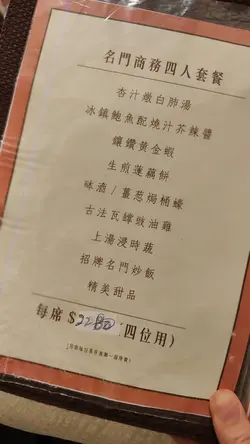 名門商務四人套餐
杏汁燉白肺湯
冰鎮鮑魚配燒汁芥辣醬
鑲鑽黃金蝦
生煎蓮藕餅
砵酒/薑葱焗桶蠔
古法瓦罉豉油雞
上湯浸時蔬
招牌名門炒飯
精美甜品
每席 $2280 (四位用)